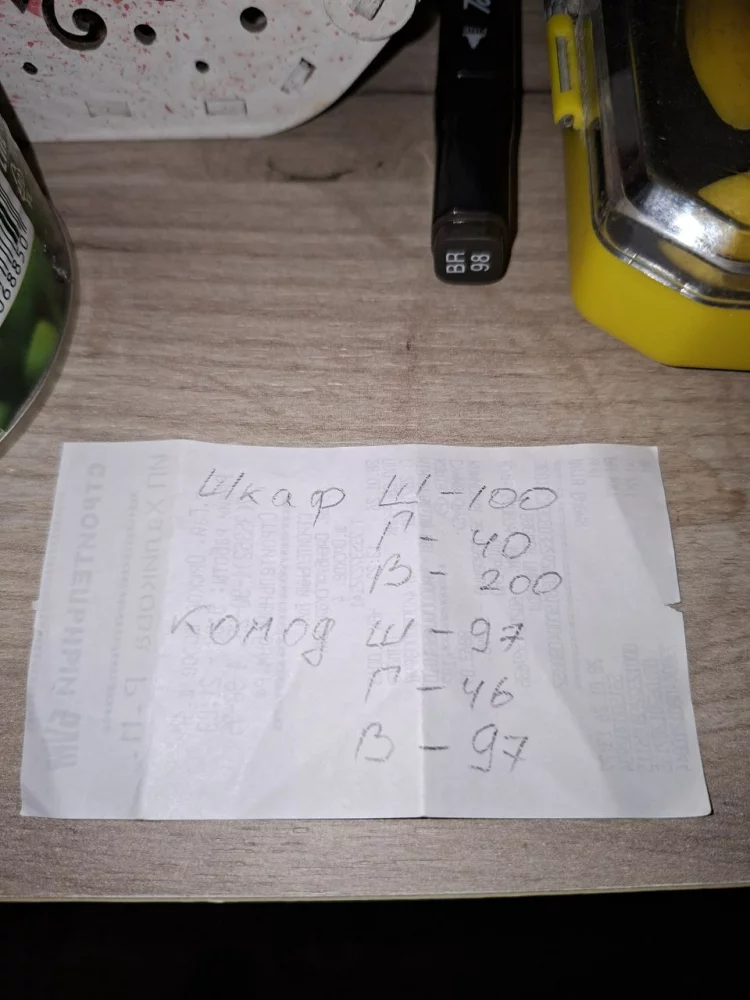 BR
98
068850
Шкаф Ш - 100
Г - 40
В - 200
Комод Ш - 97
Г - 46
В - 97